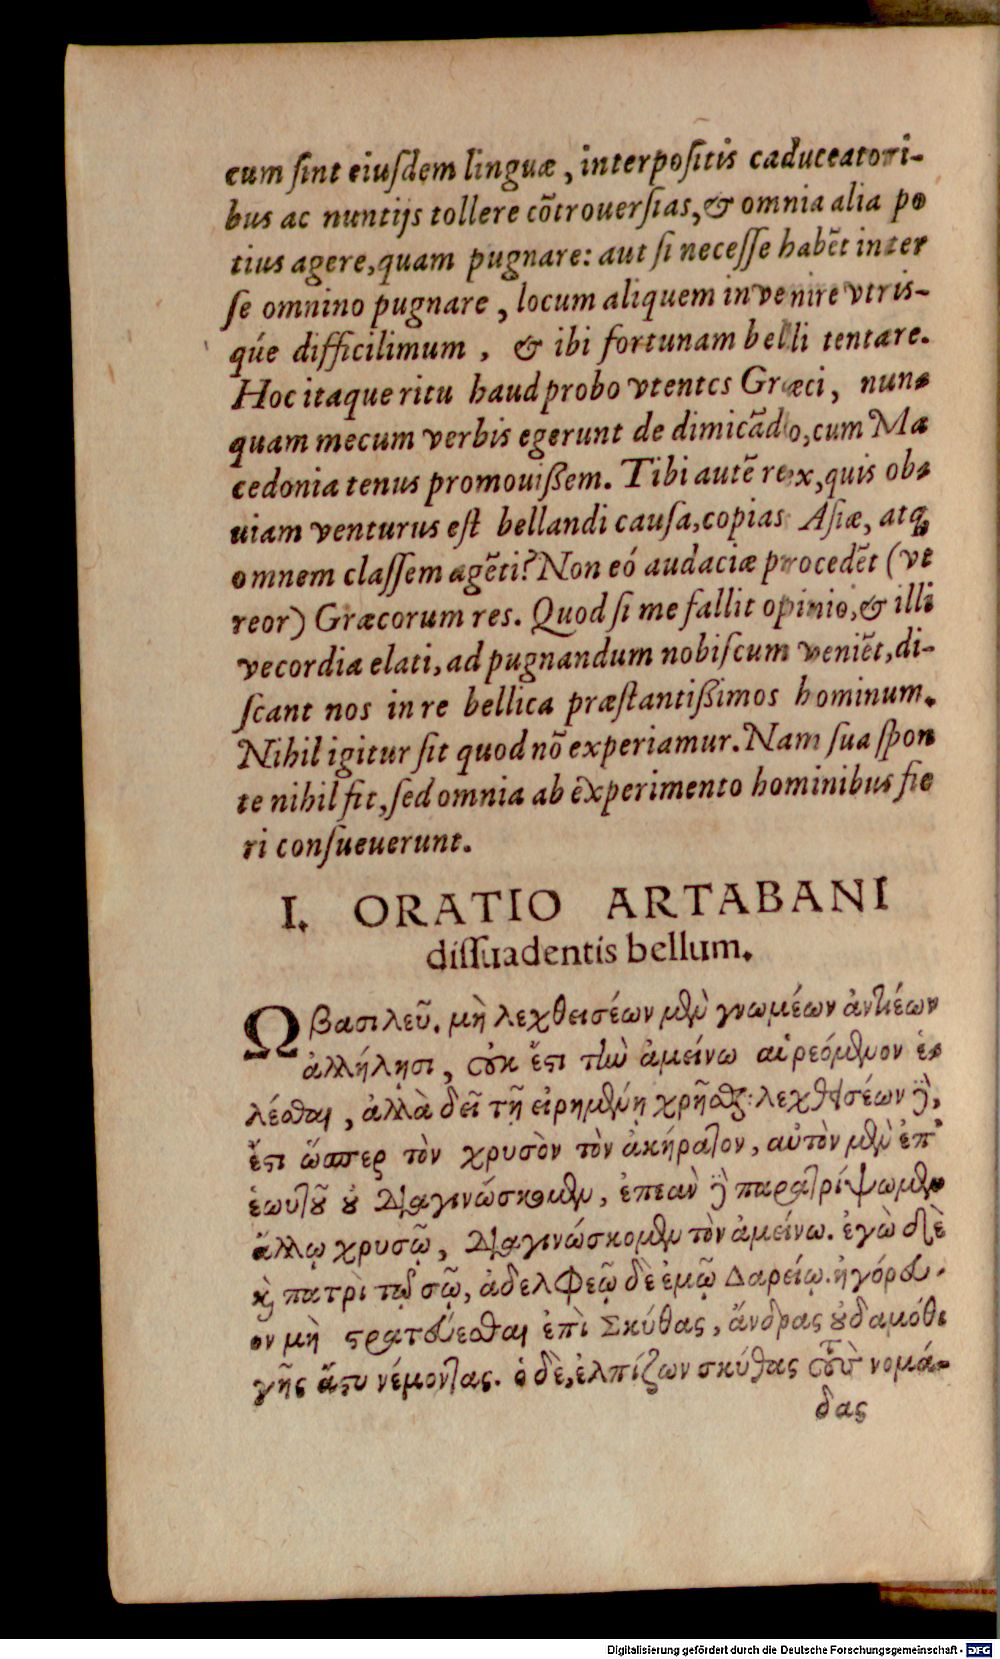 cum ſint eiuſdem linguæ, interpoſitis caduceatori-
bus ac nuntijs tollere cõtrouerſias, & omnia alia po
tius agere, quam pugnare: aut ſi neceſſe habẽt inter
ſe omnino pugnare, locum aliquem invenire vtris-
qúe difficilimum, & ibi fortunam belli tentare.
Hoc itaque ritu haud probo vtentes Græci, nun-
quam mecum verbis egerunt de dimicãdo, cum Ma
cedonia tenus promouißem. Tibi autẽ rex, quis ob-
uiam venturus eſt bellandi cauſa, copias Aſiæ, atq;
omnem claſſem agẽti? Non eó audaciæ procedẽt (vt
reor) Græcorum res. Quod ſi me fallit opinio, & illi
vecordia elati, ad pugnandum nobiſcum veniẽt, di-
ſcant nos in re bellica præſtantißimos hominum.
Nihil igitur ſit quod nõ experiamur. Nam ſua ſpon
te nihil fit, ſed omnia ab experimento hominibus fie
ri conſueuerunt.
I. ORATIO ARTABANI
diſſuadentis bellum.
Ω βασιλεῦ. μὴ λεχθεισέων μὲν γνωμέων ἀντιέων
ἀλλήλησι, οὐκ ἔστι τὴν ἀμείνω αἱρεόμενον ἑ-
λέσθαι, ἀλλὰ δεῖ τῇ εἰρημένῃ χρῆσθαι: λεχθεισέων δὲ,
ἔστι ὥσπερ τὸν χρυσὸν τὸν ἀκήρατον, αὐτὸν μὲν ἐπ'
ἑωυτοῦ οὐ διαγινώσκομεν, ἐπεὰν δὲ παρατρίψωμεν
ἄλλῳ χρυσῷ, διαγινώσκομεν τὸν ἀμείνω. ἐγὼ δὲ
καὶ πατρὶ τῷ σῷ, ἀδελφεῷ δὲ ἐμῷ Δαρείῳ. ἠγόρευ-
ον μὴ στρατεύεσθαι ἐπὶ Σκύθας, ἄνδρας οὐδαμόθι
γῆς ἄστυ νέμοντας. ὁ δὲ, ἐλπίζων σκύθας τοὺς νομά-
δας
Digitalisierung gefördert durch die Deutsche Forschungsgemeinschaft - DFG